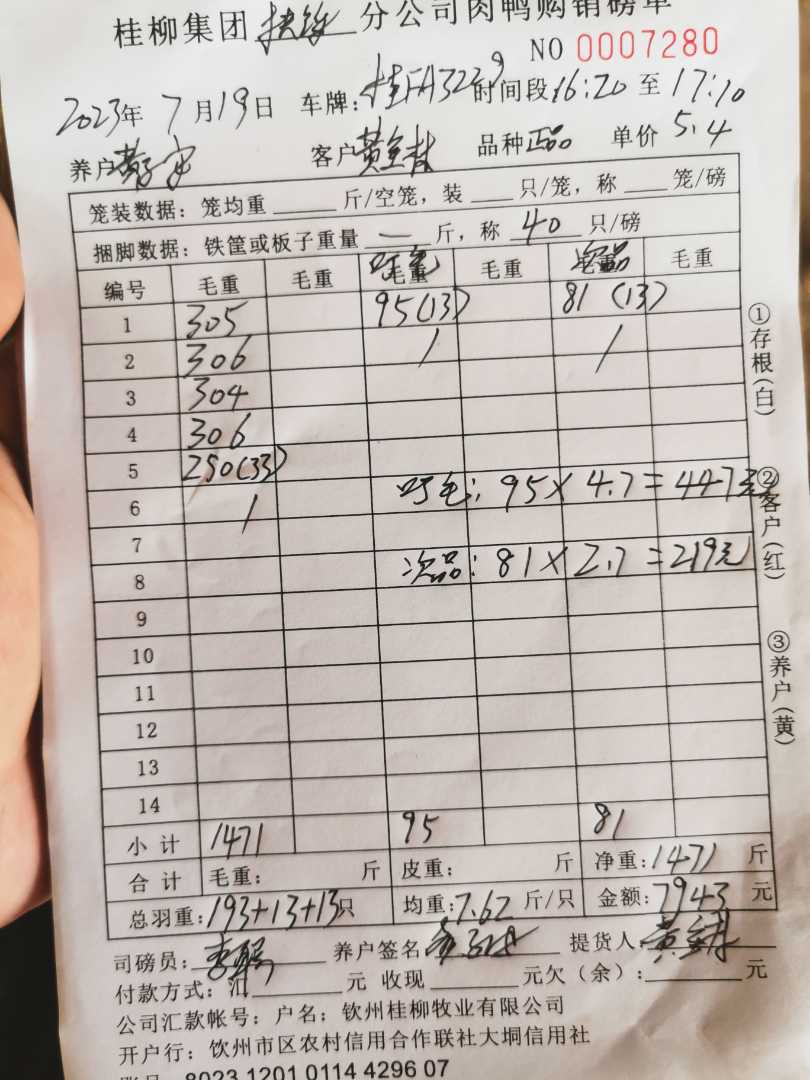 桂柳集团 扶绥 分公司肉鸭购销磅单
NO 0007280
2023年 7月19日 车牌:桂FA3229 时间段16:20 至 17:10
养户 客户 黄 品种 正品 单价 5.4
笼装数据: 笼均重 斤/空笼, 装 只/笼, 称 笼/磅
捆脚数据: 铁筐或板子重量 一 斤, 称 40 只/磅
编号 毛重 毛重 毛重 毛重 次品 毛重
1 305 95(13) 81 (13)
2 306 / /
3 304
4 306
5 250(33)
6 /
叮毛: 95×4.7=447元
7
8 次品: 81×2.7=219元
9
10
11
12
13
14
小计 1471 95 81
合计 毛重: 斤 皮重: 斤 净重:1471 斤
总羽重:193+13+13只 均重:7.62 斤/只 金额:7943 元
司磅员: 李 养户签名 提货人 黄
付款方式: 汇 元 收现 元欠(余): 元
公司汇款帐号: 户名: 钦州桂柳牧业有限公司
开户行: 钦州市区农村信用合作联社大垌信用社
8023 1201 0114 4296 07
①存根(白)
②客户(红)
③养户(黄)